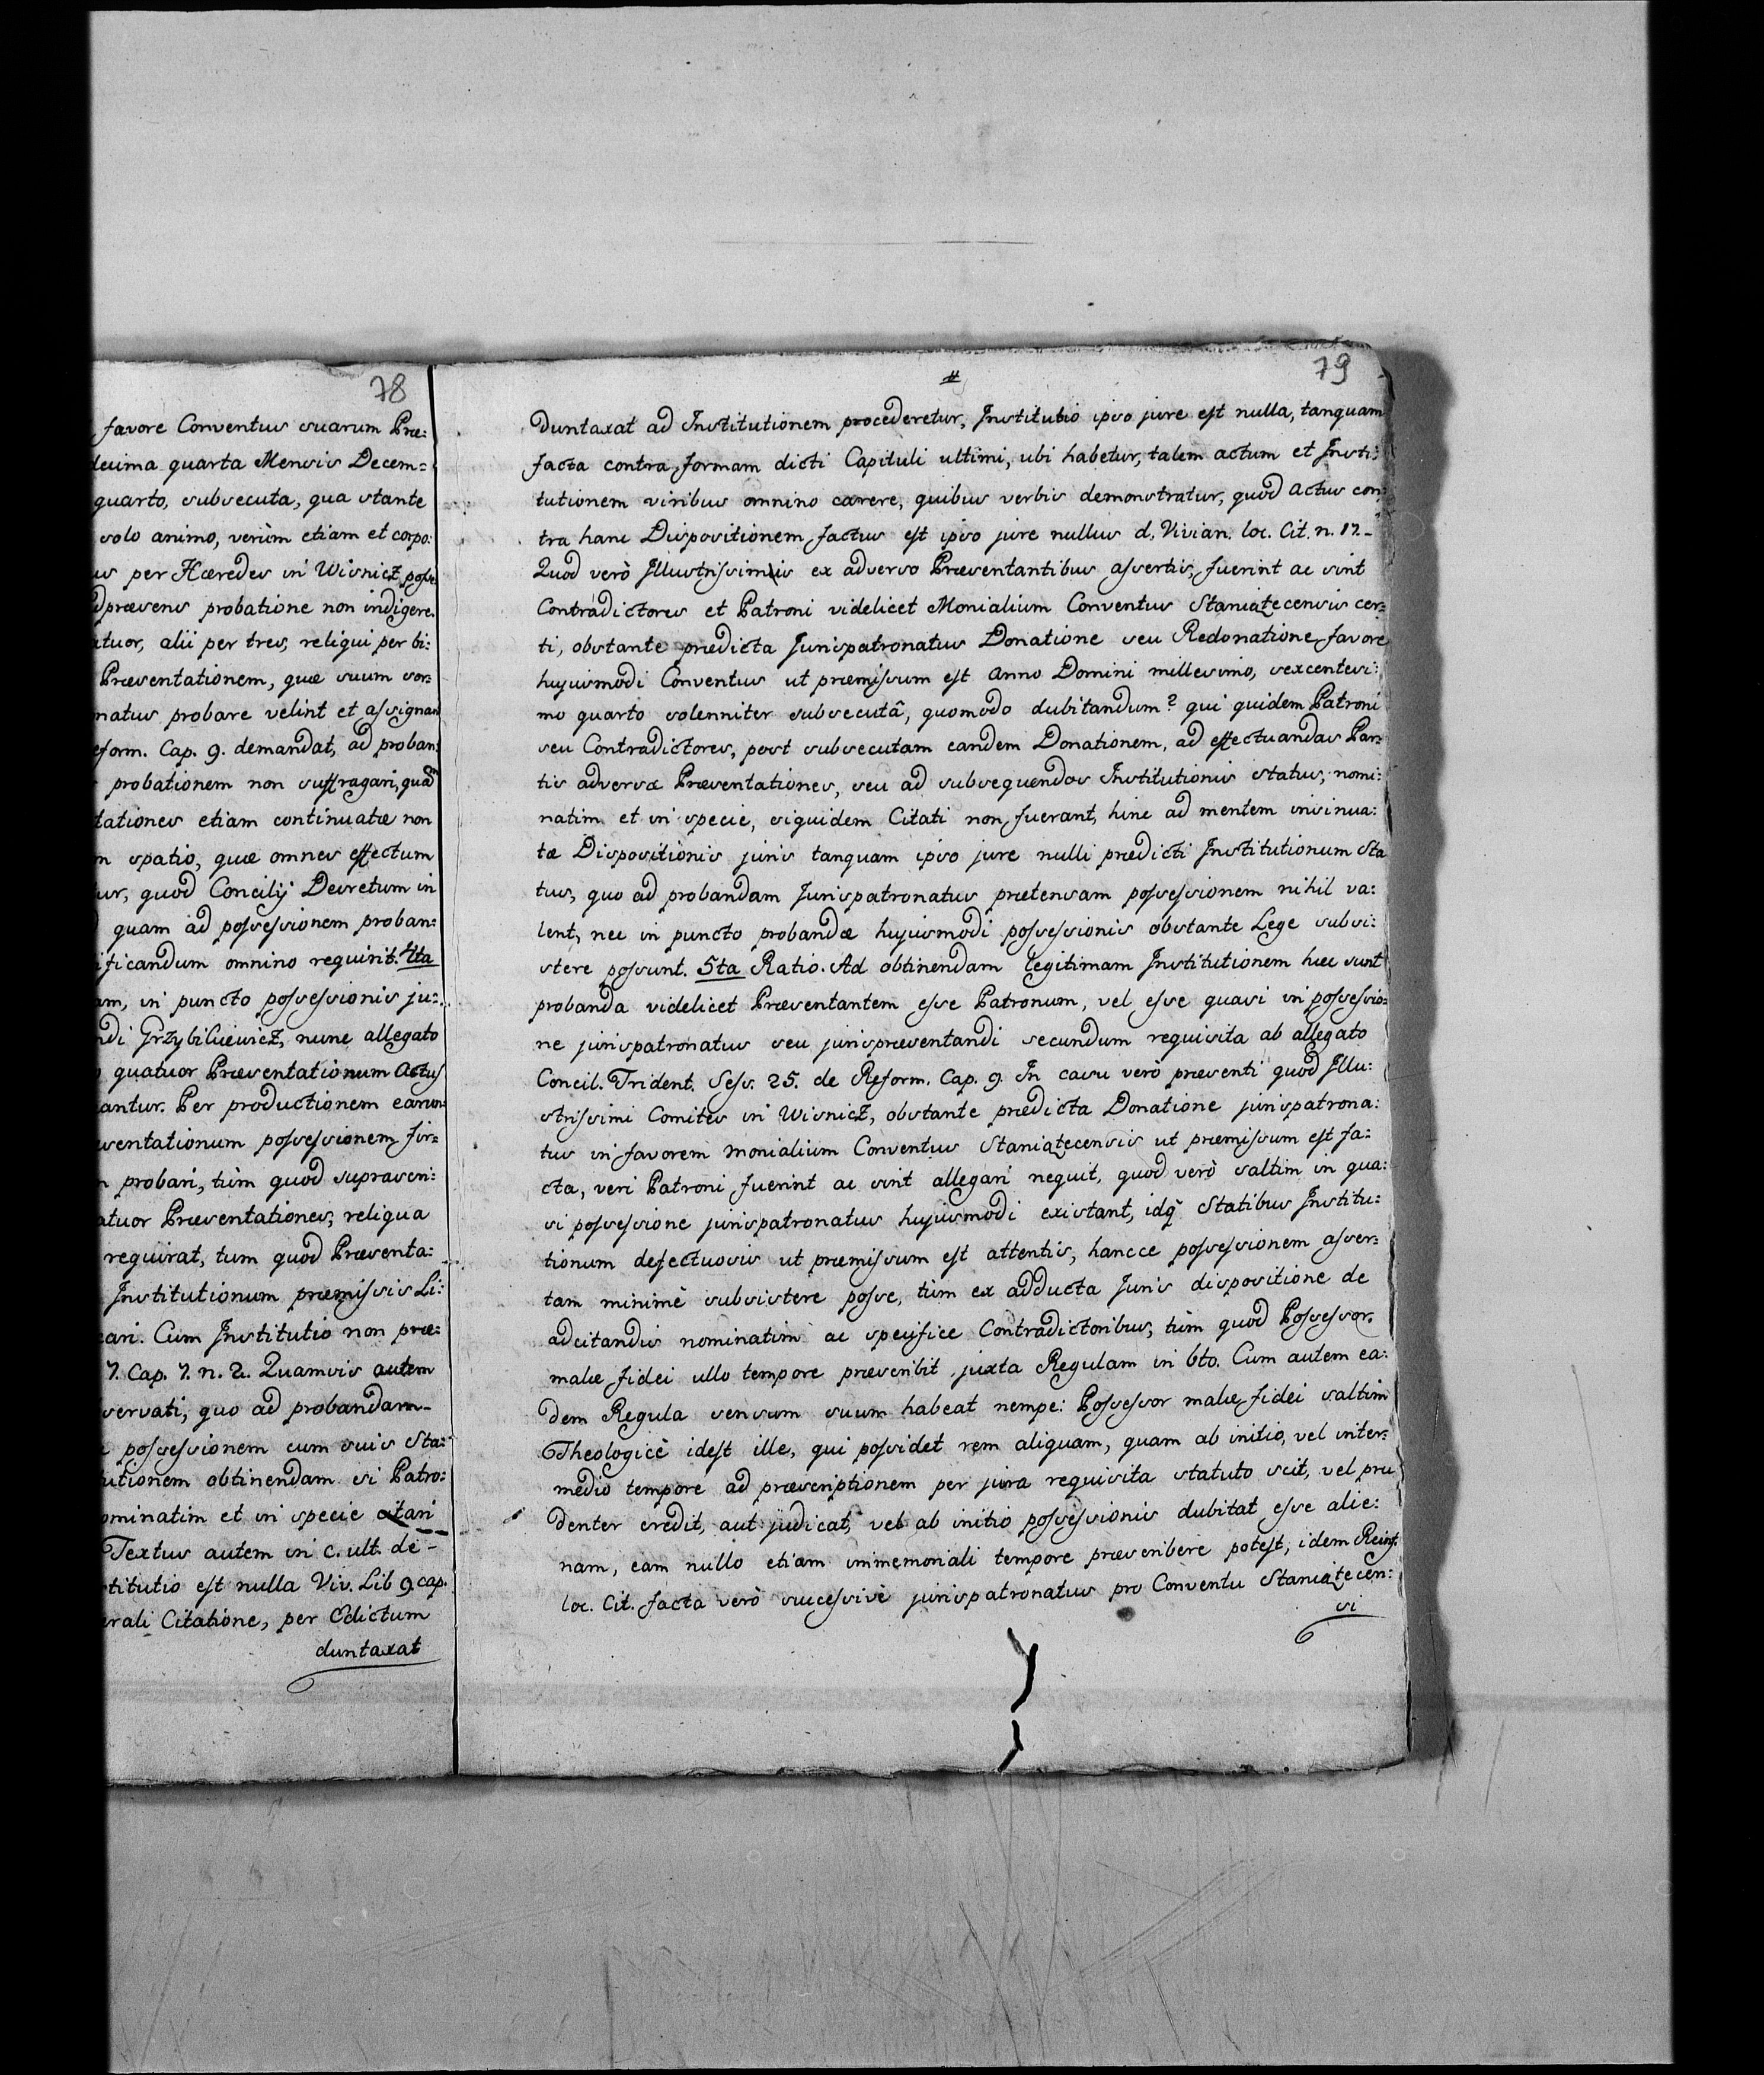 78
favore Conventus suarum Præ:
decima quarta Mensis Decem=
quarto, subsecuta, qua stante
solo animo, verùm etiam et corpo:
per Hæredes in Wisnicz posse
præsens probatione non indigere.
alii per tres, reliqui per bi:
Præsentationem, quæ suum sor=
natus probare velint et assignan
Cap. 9. demandat, ad proban:
probationem non suffragari, quàm
etiam continuatæ non
spatio, quæ omnes effectum
quod Concilij Decretum in
quam ad possessionem proban:
omnino requirit. 4ta
in puncto possessionis ju:
Grzybiciewicz, nunc allegato
quatuor Præsentationum Actus
Per productionem earun=
possessionem fir=
probari, tùm quod supraseri:
Præsentationes, reliqua
requirat, tum quod Præsenta:
Institutionum præmissis Li:
Cùm Institutio non præ=
7. Cap. 7. n. 2. Quamvis autem
quo ad probandam
possessionem cum suis Sta:
obtinendam si Patro:
et in specie citari
Textus autem in c. ult. de -
est nulla Viv. Lib 9. cap.
Citatione, per Edictum
duntaxat
79
Duntaxat ad Institutionem procederetur, Institutio ipso jure est nulla, tanquam
facta contra formam dicti Capituli ultimi, ubi habetur, talem actum et Insti:
tutionem viribus omnino carere, quibus verbis demonstratur, quod Actus con:
tra hanc Dispositionem factus est ipso jure nullus d. Vivian. loc. Cit. n. 17. -
Quod verò Illustrissimis ex adverso Præsentantibus assertis, fuerint ac sint
Contradictores et Patroni videlicet Monialium Conventus Staniatecensis cer=
ti, obstante prædicta Jurispatronatus Donatione seu Redonatione favore
hujusmodi Conventus ut præmissum est Anno Domini millesimo, sexcentesi:
mo quarto solenniter subsecutâ, quomodo dubitandum? qui quidem Patroni
seu Contradictores, post subsecutam eandem Donationem, ad effectuandas Par=
tis adversæ Præsentationes, seu ad subsequendos Institutionis status, nomi:
natim et in specie, siquidem Citati non fuerant, hinc ad mentem insinua:
tæ Dispositionis juris tanquam ipso jure nulli prædicti Institutionum Sta
tus, quo ad probandam Jurispatronatus prætensam possessionem nihil va:
lent, nec in puncto probandæ hujusmodi possessionis obstante Lege subsi:
stere possunt. 5ta Ratio. Ad obtinendam legitimam Institutionem hæc sunt
probanda videlicet Præsentantem esse Patronum, vel esse quasi in possessio=
ne jurispatronatus seu jurispræsentandi secundum requisita ab allegato
Concil. Trident. Sess. 25. de Reform. Cap. 9. In casu verò præsenti quod Illu:
strissimi Comites in Wisnicz, obstante prædicta Donatione jurispatrona:
tus in favorem Monialium Conventus Staniatecensis ut præmissum est fa:
cta, veri Patroni fuerint ac sint allegari nequit, quod verò saltim in qua:
si possessione jurispatronatus hujusmodi existant, idq. Statibus Institu:
tionum defectuosis ut præmissum est attentis, hancce possessionem asser=
tam minimè subsistere posse, tùm ex adducta Juris dispositione de
adcitandis nominatim ac specifice Contradictoribus, tùm quod Possessor.
malæ fidei ullo tempore præscribit, juxta Regulam in 6to. Cum autem ea:
dem Regula sensum suum habeat nempe: Possessor malæ fidei saltim
Theologicè idest ille, qui possidet rem aliquam, quam ab initio, vel inter=
medio tempore ad præscriptionem per jura requisita statuto scit, vel pru
denter credit, aut judicat, vel ab initio possessionis dubitat esse alie:
nam, eam nullo etiam immemoriali tempore præscribere potest, idem Reinf.
loc. Cit. facta verò successivè jurispatronatus pro Conventu Staniatecen:
si